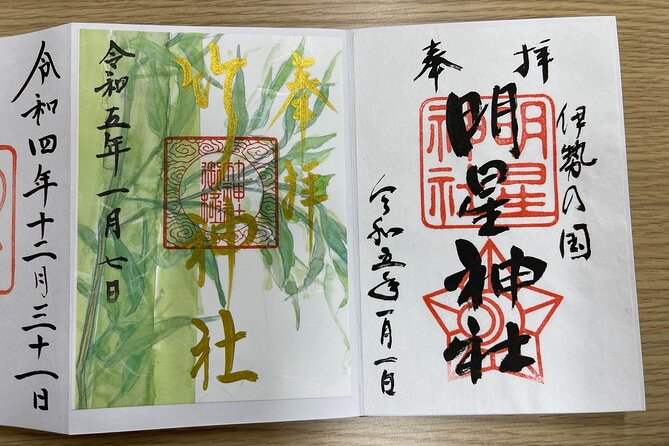 拝
奉
伊勢の国
明星神社
明星
神社
令和五年一月一日
奉拝
竹神社
令和五年一月七日
令和四年十二月三十一日